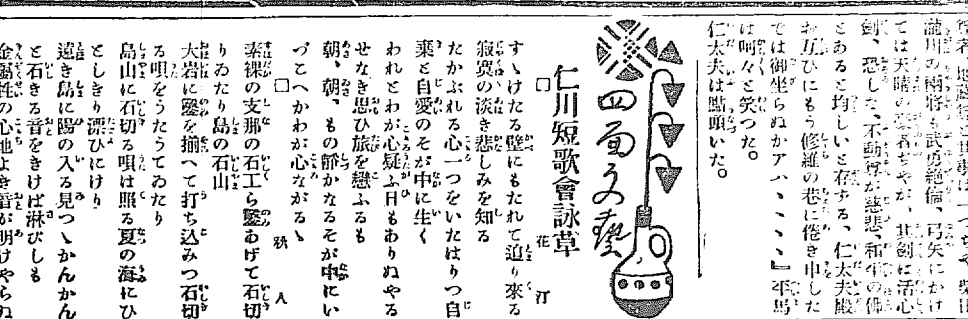 瀧川の兩將も武勇絶倫、弓矢にかけ
ては天晴の忍者ぢやが、其劍に活心
劍、恐しな、不動尊が慈悲、和平の佛
とあると均しいと存ずる、仁太夫殿
お互ひにもう修羅の巷に倦き申した
では御坐らぬかアハ、、、、』平馬
は呵々と笑つた。
仁太夫は點頭いた。
四面文藝
仁川短歌會詠草
□ 花汀
すゝけたる壁にもたれて迫り來る
寂寞の淡き悲しみを知る
たかぶれる心一つをいたはりつ自
棄と自愛のそが中に生く
われとわが心疑ふ日もありぬやる
せなき思ひ旅を戀ふるも
朝、朝、もの靜かなるそが中にい
づこへかわが心ながるゝ
□ 人
素裸の支那の石工ら鑿あげて石切
りゐたり島の石山
大岩に鑿を揃へて打ち込みつ石切
る唄をうたうてゐたり
島山に石切る唄は照る夏の海にひ
としきり漂ひにけり
遠き島に陽の入る見つゝかんかん
と石きる音をきけば淋びしも
金屬性の心地よき音が明けやらぬ